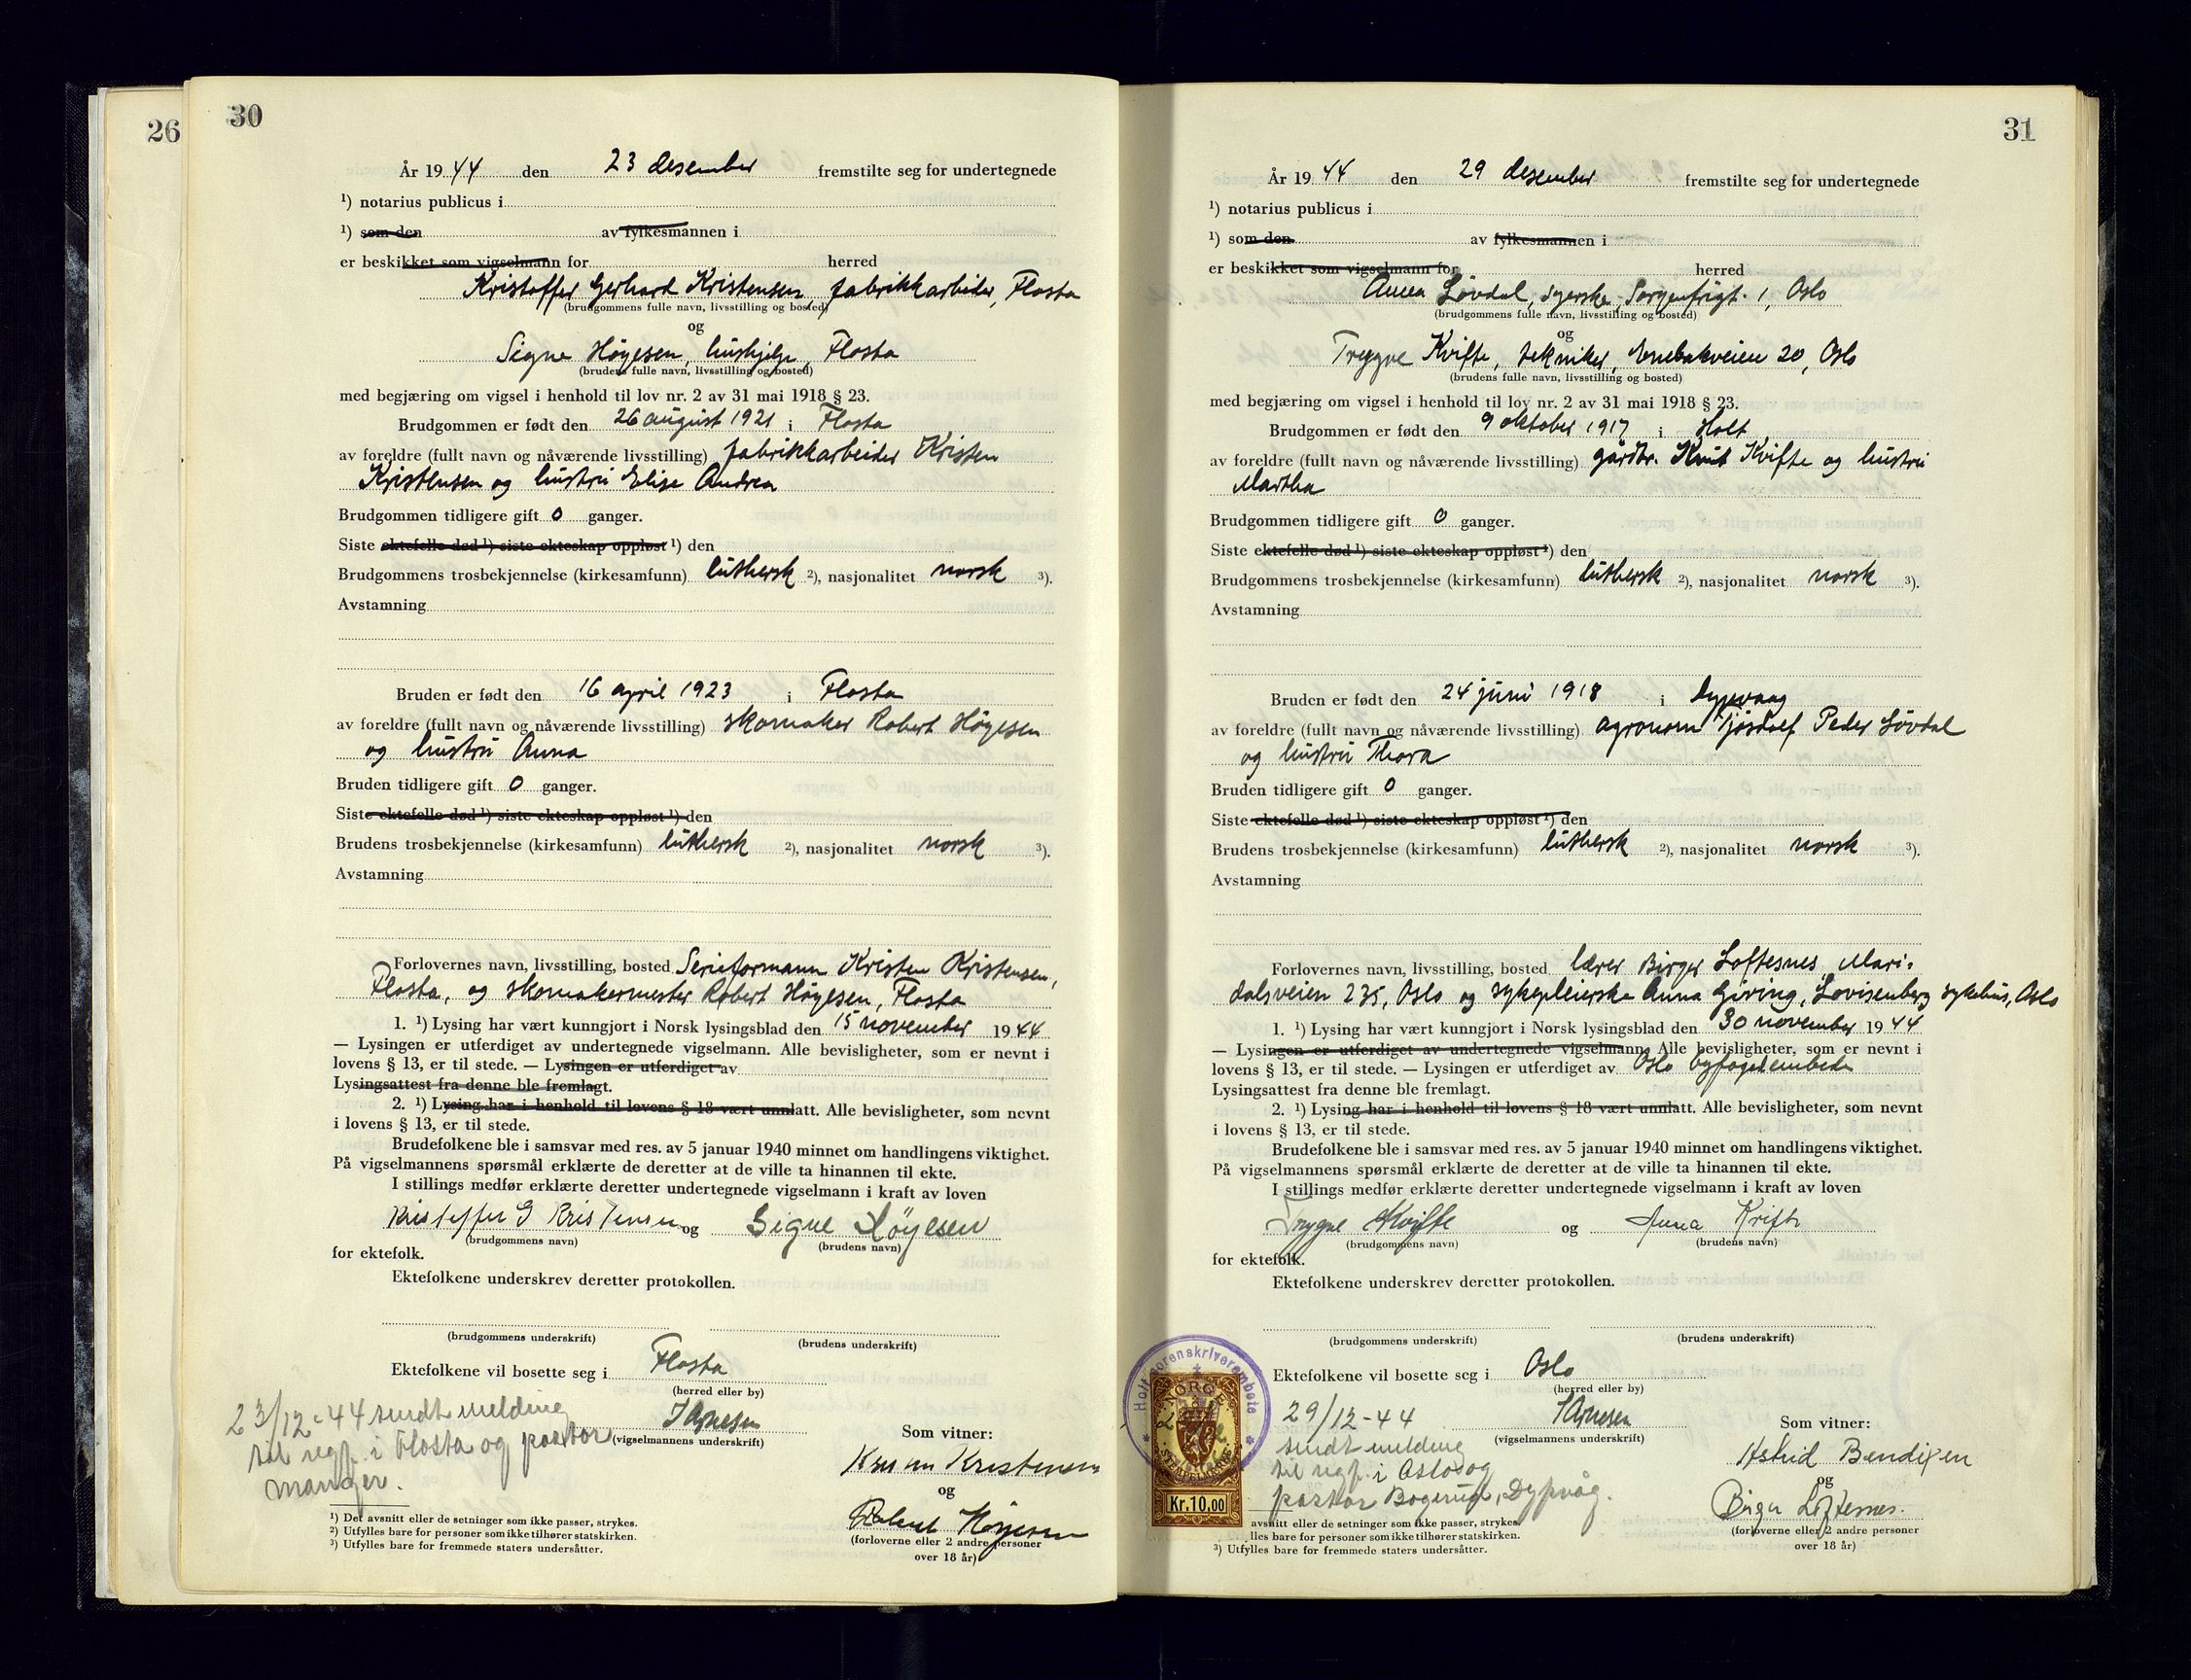 26
30
År 1944 den 23 desember fremstilte seg for undertegnede
¹) notarius publicus i
¹) som den av fylkesmannen i
er beskikket som vigselmann for herred
Kristoffer Gerhard Kristensen, fabrikkarbeider, Flosta
(brudgommens fulle navn, livsstilling og bosted)
og
Signe Høyesen, hushjelp, Flosta
(brudens fulle navn, livsstilling og bosted)
med begjæring om vigsel i henhold til lov nr. 2 av 31 mai 1918 § 23.
Brudgommen er født den 26 august 1921 i Flosta
av foreldre (fullt navn og nåværende livsstilling) fabrikkarbeider Kristen
Kristensen og hustru Elise Andrea
Brudgommen tidligere gift 0 ganger.
Siste ektefelle død ¹) siste ekteskap oppløst ¹) den
Brudgommens trosbekjennelse (kirkesamfunn) luthersk ²), nasjonalitet norsk ³).
Avstamning
Bruden er født den 16 april 1923 i Flosta
av foreldre (fullt navn og nåværende livsstilling) skomaker Robert Høyesen
og hustru Anna
Bruden tidligere gift 0 ganger.
Siste ektefelle død ¹) siste ekteskap oppløst ¹) den
Brudens trosbekjennelse (kirkesamfunn) luthersk ²), nasjonalitet norsk ³).
Avstamning
Forlovernes navn, livsstilling, bosted Serieformann Kristen Kristensen,
Flosta, og skomakermester Robert Høyesen, Flosta
1. ¹) Lysing har vært kunngjort i Norsk lysingsblad den 15 november 1944
— Lysingen er utferdiget av undertegnede vigselmann. Alle bevisligheter, som er nevnt i
lovens § 13, er til stede. — Lysingen er utferdiget av
Lysingsattest fra denne ble fremlagt.
2. ¹) Lysing har i henhold til lovens § 18 vært unnlatt. Alle bevisligheter, som nevnt
i lovens § 13, er til stede.
Brudefolkene ble i samsvar med res. av 5 januar 1940 minnet om handlingens viktighet.
På vigselmannens spørsmål erklærte de deretter at de ville ta hinannen til ekte.
I stillings medfør erklærte deretter undertegnede vigselmann i kraft av loven
Kristoffer G Kristensen og Signe Høyesen
(brudgommens navn) (brudens navn)
for ektefolk.
Ektefolkene underskrev deretter protokollen.
(brudgommens underskrift) (brudens underskrift)
Ektefolkene vil bosette seg i Flosta
(herred eller by)
23/12-44 sendt melding
til regf. i Flosta og pastor
Manger.
J Arnesen
(vigselmannens underskrift)
Som vitner:
Kristen Kristensen
og
Robert Høyesen
(forloverne eller 2 andre personer
over 18 år)
¹) Det avsnitt eller de setninger som ikke passer, strykes.
²) Utfylles bare for personer som ikke tilhører statskirken.
³) Utfylles bare for fremmede staters undersåtter.
31
År 1944 den 29 desember fremstilte seg for undertegnede
¹) notarius publicus i
¹) som den av fylkesmannen i
er beskikket som vigselmann for herred
Anna Løvdal, syerske, Sorgenfrigt. 1, Oslo
(brudgommens fulle navn, livsstilling og bosted)
og
Trygve Kvifte, tekniker, Enebakveien 20, Oslo
(brudens fulle navn, livsstilling og bosted)
med begjæring om vigsel i henhold til lov nr. 2 av 31 mai 1918 § 23.
Brudgommen er født den 9 oktober 1917 i Holt
av foreldre (fullt navn og nåværende livsstilling) gårdbr. Knut Kvifte og hustru
Martha
Brudgommen tidligere gift 0 ganger.
Siste ektefelle død ¹) siste ekteskap oppløst ¹) den
Brudgommens trosbekjennelse (kirkesamfunn) luthersk ²), nasjonalitet norsk ³).
Avstamning
Bruden er født den 24 juni 1918 i Dypvaag
av foreldre (fullt navn og nåværende livsstilling) agronom Tjøstolf Peder Løvdal
og hustru Thora
Bruden tidligere gift 0 ganger.
Siste ektefelle død ¹) siste ekteskap oppløst ¹) den
Brudens trosbekjennelse (kirkesamfunn) luthersk ²), nasjonalitet norsk ³).
Avstamning
Forlovernes navn, livsstilling, bosted lærer Birger Loftesnes, Mari-
dalsveien 235, Oslo og sykepleierske Anna Giving, Lovisenberg sykehus, Oslo
1. ¹) Lysing har vært kunngjort i Norsk lysingsblad den 30 november 1944
— Lysingen er utferdiget av undertegnede vigselmann. Alle bevisligheter, som er nevnt i
lovens § 13, er til stede. — Lysingen er utferdiget av Oslo byfogdembede
Lysingsattest fra denne ble fremlagt.
2. ¹) Lysing har i henhold til lovens § 18 vært unnlatt. Alle bevisligheter, som nevnt
i lovens § 13, er til stede.
Brudefolkene ble i samsvar med res. av 5 januar 1940 minnet om handlingens viktighet.
På vigselmannens spørsmål erklærte de deretter at de ville ta hinannen til ekte.
I stillings medfør erklærte deretter undertegnede vigselmann i kraft av loven
Trygve Kvifte og Anna Kvifte
(brudgommens navn) (brudens navn)
for ektefolk.
Ektefolkene underskrev deretter protokollen.
(brudgommens underskrift) (brudens underskrift)
Ektefolkene vil bosette seg i Oslo
(herred eller by)
29/12-44
sendt melding
til regf. i Oslo og
pastor Bogerud, Dypvåg.
J Arnesen
(vigselmannens underskrift)
Som vitner:
Astrid Bendixen
og
Birger Loftesnes.
(forloverne eller 2 andre personer
over 18 år)
Holt sorenskriverembete
NORGE
STEMPELMERKE
Kr.10,00
avsnitt eller de setninger som ikke passer, strykes.
lles bare for personer som ikke tilhører statskirken.
³) Utfylles bare for fremmede staters undersåtter.